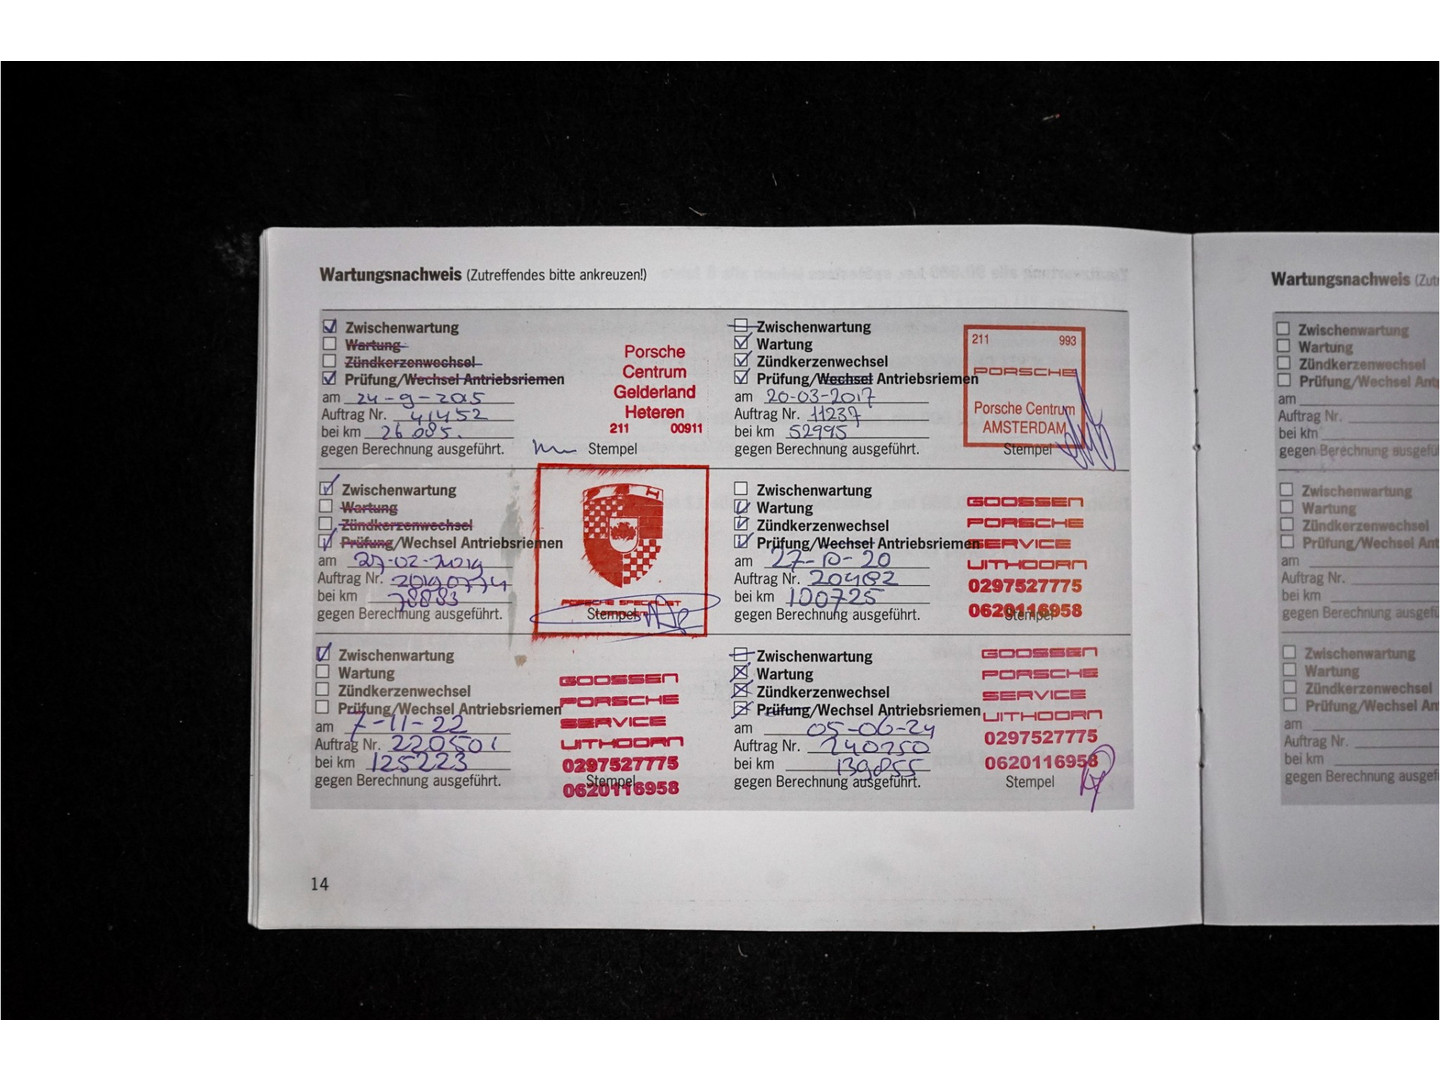 Wartungsnachweis (Zutreffendes bitte ankreuzen!)
Zwischenwartung
Wartung
Zündkerzenwechsel
Prüfung/Wechsel Antriebsriemen
am 24-9-2015
Auftrag Nr. 41452
bei km 26 085.
gegen Berechnung ausgeführt.
Stempel
Porsche
Centrum
Gelderland
Heteren
211 00911
Zwischenwartung
Wartung
Zündkerzenwechsel
Prüfung/Wechsel Antriebsriemen
am 20-03-2017
Auftrag Nr. 11237
bei km 52995
gegen Berechnung ausgeführt.
Stempel
211 993
PORSCHE
Porsche Centrum
AMSTERDAM
Zwischenwartung
Wartung
Zündkerzenwechsel
Prüfung/Wechsel Antriebsriemen
am 27-02-2019
Auftrag Nr. 20190774
bei km 78883
gegen Berechnung ausgeführt.
Stempel
PORSCHE SPECIALIST
Zwischenwartung
Wartung
Zündkerzenwechsel
Prüfung/Wechsel Antriebsriemen
am 27-10-20
Auftrag Nr. 20482
bei km 100725
gegen Berechnung ausgeführt.
Stempel
GOOSSEN
PORSCHE
SERVICE
UITHOORN
0297527775
0620116958
Zwischenwartung
Wartung
Zündkerzenwechsel
Prüfung/Wechsel Antriebsriemen
am 7-11-22
Auftrag Nr. 220501
bei km 125223
gegen Berechnung ausgeführt.
Stempel
GOOSSEN
PORSCHE
SERVICE
UITHOORN
0297527775
0620116958
Zwischenwartung
Wartung
Zündkerzenwechsel
Prüfung/Wechsel Antriebsriemen
am 05-06-24
Auftrag Nr. 240250
bei km 139855
gegen Berechnung ausgeführt.
Stempel
GOOSSEN
PORSCHE
SERVICE
UITHOORN
0297527775
0620116958
14
Wartungsnachweis (Zut
Zwischenwartung
Wartung
Zündkerzenwechsel
Prüfung/Wechsel Ant
am
Auftrag Nr.
bei km
gegen Berechnung ausgefü
Zwischenwartung
Wartung
Zündkerzenwechsel
Prüfung/Wechsel Ant
am
Auftrag Nr.
bei km
gegen Berechnung ausgefü
Zwischenwartung
Wartung
Zündkerzenwechsel
Prüfung/Wechsel An
am
Auftrag Nr.
bei km
gegen Berechnung ausgef